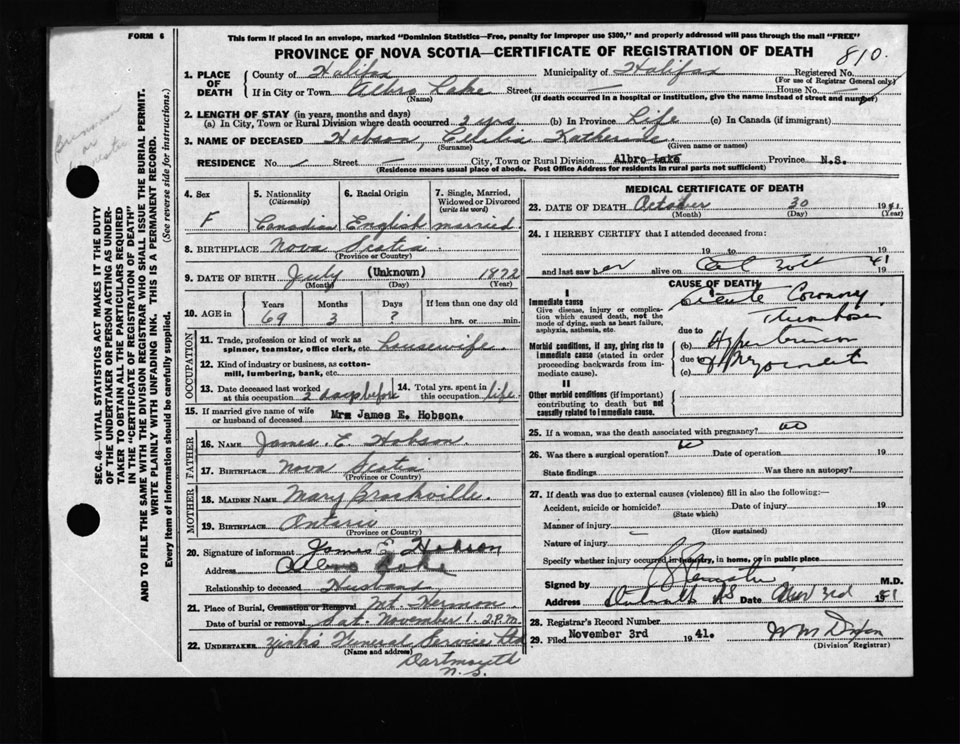 FORM 6
This form if placed in an envelope, marked "Dominion Statistics—Free, penalty for improper use $300," and properly addressed will pass through the mail "FREE"
PROVINCE OF NOVA SCOTIA—CERTIFICATE OF REGISTRATION OF DEATH
810.
1. PLACE OF DEATH
County of Halifax Municipality of Halifax Registered No.
(For use of Registrar General only)
If in City or Town Albro Lake Street — House No. —
(Name) (If death occurred in a hospital or institution, give the name instead of street and number)
2. LENGTH OF STAY (in years, months and days)
(a) In City, Town or Rural Division where death occurred 2 yrs. (b) In Province Life (c) In Canada (if immigrant)
3. NAME OF DECEASED Hobson, Katherine
(Surname) (Given name or names)
RESIDENCE No. Street — City, Town or Rural Division Albro Lake Province N.S.
(Residence means usual place of abode. Post Office Address for residents in rural parts not sufficient)
4. Sex
F
5. Nationality
(Citizenship)
Canadian
6. Racial Origin
English
7. Single, Married, Widowed or Divorced
(write the word)
married.
8. BIRTHPLACE Nova Scotia
(Province or Country)
9. DATE OF BIRTH July (Unknown) 1872
(Month) (Day) (Year)
10. AGE in
Years Months Days If less than one day old
69 3 ? hrs. or min.
OCCUPATION
11. Trade, profession or kind of work as spinner, teamster, office clerk, etc. housewife.
12. Kind of industry or business, as cotton-mill, lumbering, bank, etc.
13. Date deceased last worked at this occupation 2 days before
14. Total yrs. spent in this occupation life.
15. If married give name of wife or husband of deceased Mrs James E. Hobson.
FATHER
16. NAME James. E. Hobson.
17. BIRTHPLACE Nova Scotia
(Province or Country)
MOTHER
18. MAIDEN NAME Mary Brockville.
19. BIRTHPLACE Ontario
(Province or Country)
20. Signature of informant James E Hobson
Address Albro Lake
Relationship to deceased Husband
21. Place of Burial, Cremation or Removal Mt. Hermon.
Date of burial or removal Sat. November 1. 2 P.M.
22. UNDERTAKER Zink's Funeral Service Ltd
(Name and address)
Dartmouth
N.S.
MEDICAL CERTIFICATE OF DEATH
23. DATE OF DEATH October 30 1941
(Month) (Day) (Year)
24. I HEREBY CERTIFY that I attended deceased from:
19 to 19
and last saw her alive on Oct 30th 1941
CAUSE OF DEATH
I
Immediate cause
Give disease, injury or complication which caused death, not the mode of dying, such as heart failure, asphyxia, asthenia, etc.
Acute Coronary
Thrombosis
Morbid conditions, if any, giving rise to immediate cause (stated in order proceeding backwards from immediate cause).
due to
(b) Hypertension
due to
(c) Myocarditis
II
Other morbid conditions (if important) contributing to death but not causally related to immediate cause.
25. If a woman, was the death associated with pregnancy? no
26. Was there a surgical operation? no Date of operation 19
State findings Was there an autopsy?
27. If death was due to external causes (violence) fill in also the following:—
Accident, suicide or homicide? Date of injury 19
(State which)
Manner of injury —
(How sustained)
Nature of injury
Specify whether injury occurred in industry, in home, or in public place
Signed by M.D.
Address N S Date Nov 3rd 1941
28. Registrar's Record Number
29. Filed November 3rd 1941.
W M Dixon
(Division Registrar)
SEC. 46—VITAL STATISTICS ACT MAKES IT THE DUTY
OF THE UNDERTAKER OR PERSON ACTING AS UNDER-
TAKER TO OBTAIN ALL THE PARTICULARS REQUIRED
IN THE "CERTIFICATE OF REGISTRATION OF DEATH"
AND TO FILE THE SAME WITH THE DIVISION REGISTRAR WHO SHALL ISSUE THE BURIAL PERMIT.
WRITE PLAINLY WITH UNFADING INK. THIS IS A PERMANENT RECORD.
Every item of Information should be carefully supplied. (See reverse side for instructions.)